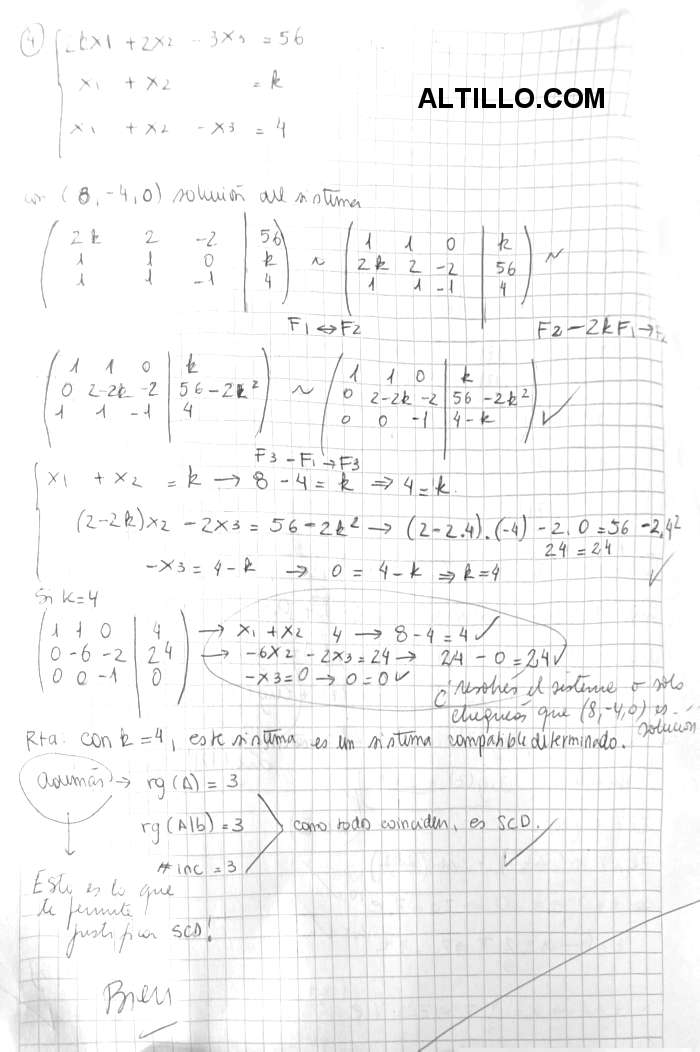 4) 2kx1 + 2x2 - 3x3 = 56
x1 + x2 = k
x1 + x2 - x3 = 4
ALTILLO.COM
con (8, -4, 0) solución del sistema
( 2k 2 -2 | 56 ) ~ ( 1 1 0 | k ) ~
( 1 1 0 | k ) ( 2k 2 -2 | 56 )
( 1 1 -1 | 4 ) ( 1 1 -1 | 4 )
F1 ↔ F2 F2 - 2kF1 → F2
( 1 1 0 | k ) ~ ( 1 1 0 | k )
( 0 2-2k -2 | 56-2k² ) ( 0 2-2k -2 | 56-2k² ) ✓
( 1 1 -1 | 4 ) ( 0 0 -1 | 4-k )
F3 - F1 → F3
x1 + x2 = k → 8 - 4 = k ⇒ 4 = k.
(2-2k)x2 - 2x3 = 56 - 2k² → (2-2.4).(-4) - 2.0 = 56 - 2.4²
24 = 24
-x3 = 4-k → 0 = 4-k ⇒ k=4 ✓
Si k=4
( 1 1 0 | 4 ) → x1 + x2 4 → 8-4=4 ✓
( 0 -6 -2 | 24 ) → -6x2 - 2x3 = 24 → 24 - 0 = 24 ✓
( 0 0 -1 | 0 ) -x3=0 → 0=0 ✓
resolvés el sistema o sólo
chequeás que (8,-4,0) es
solución
Rta: con k=4, este sistema es un sistema compatible determinado.
además → rg(A) = 3
rg(A|b) = 3 como todo coinciden, es SCD. ✓
# inc = 3
Esto es lo que
te permite
justificar SCD!
Bien ✓